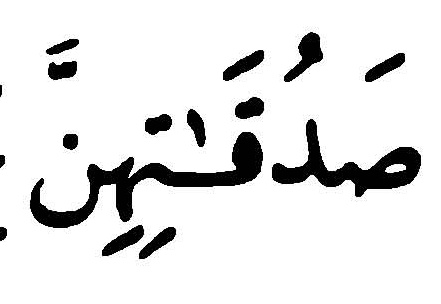 صَدُقَٰتِهِنَّ